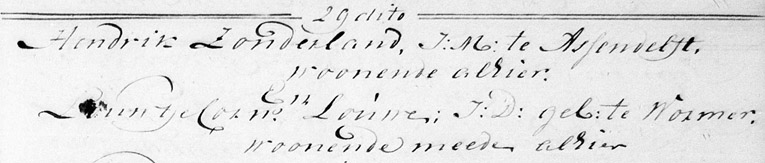 29 dito
Hendrik Zonderland, J: M: te Assendelft,
woonende alhier.
Corn:s Louwe; J: D: geb: te Wormer,
woonende meede alhier